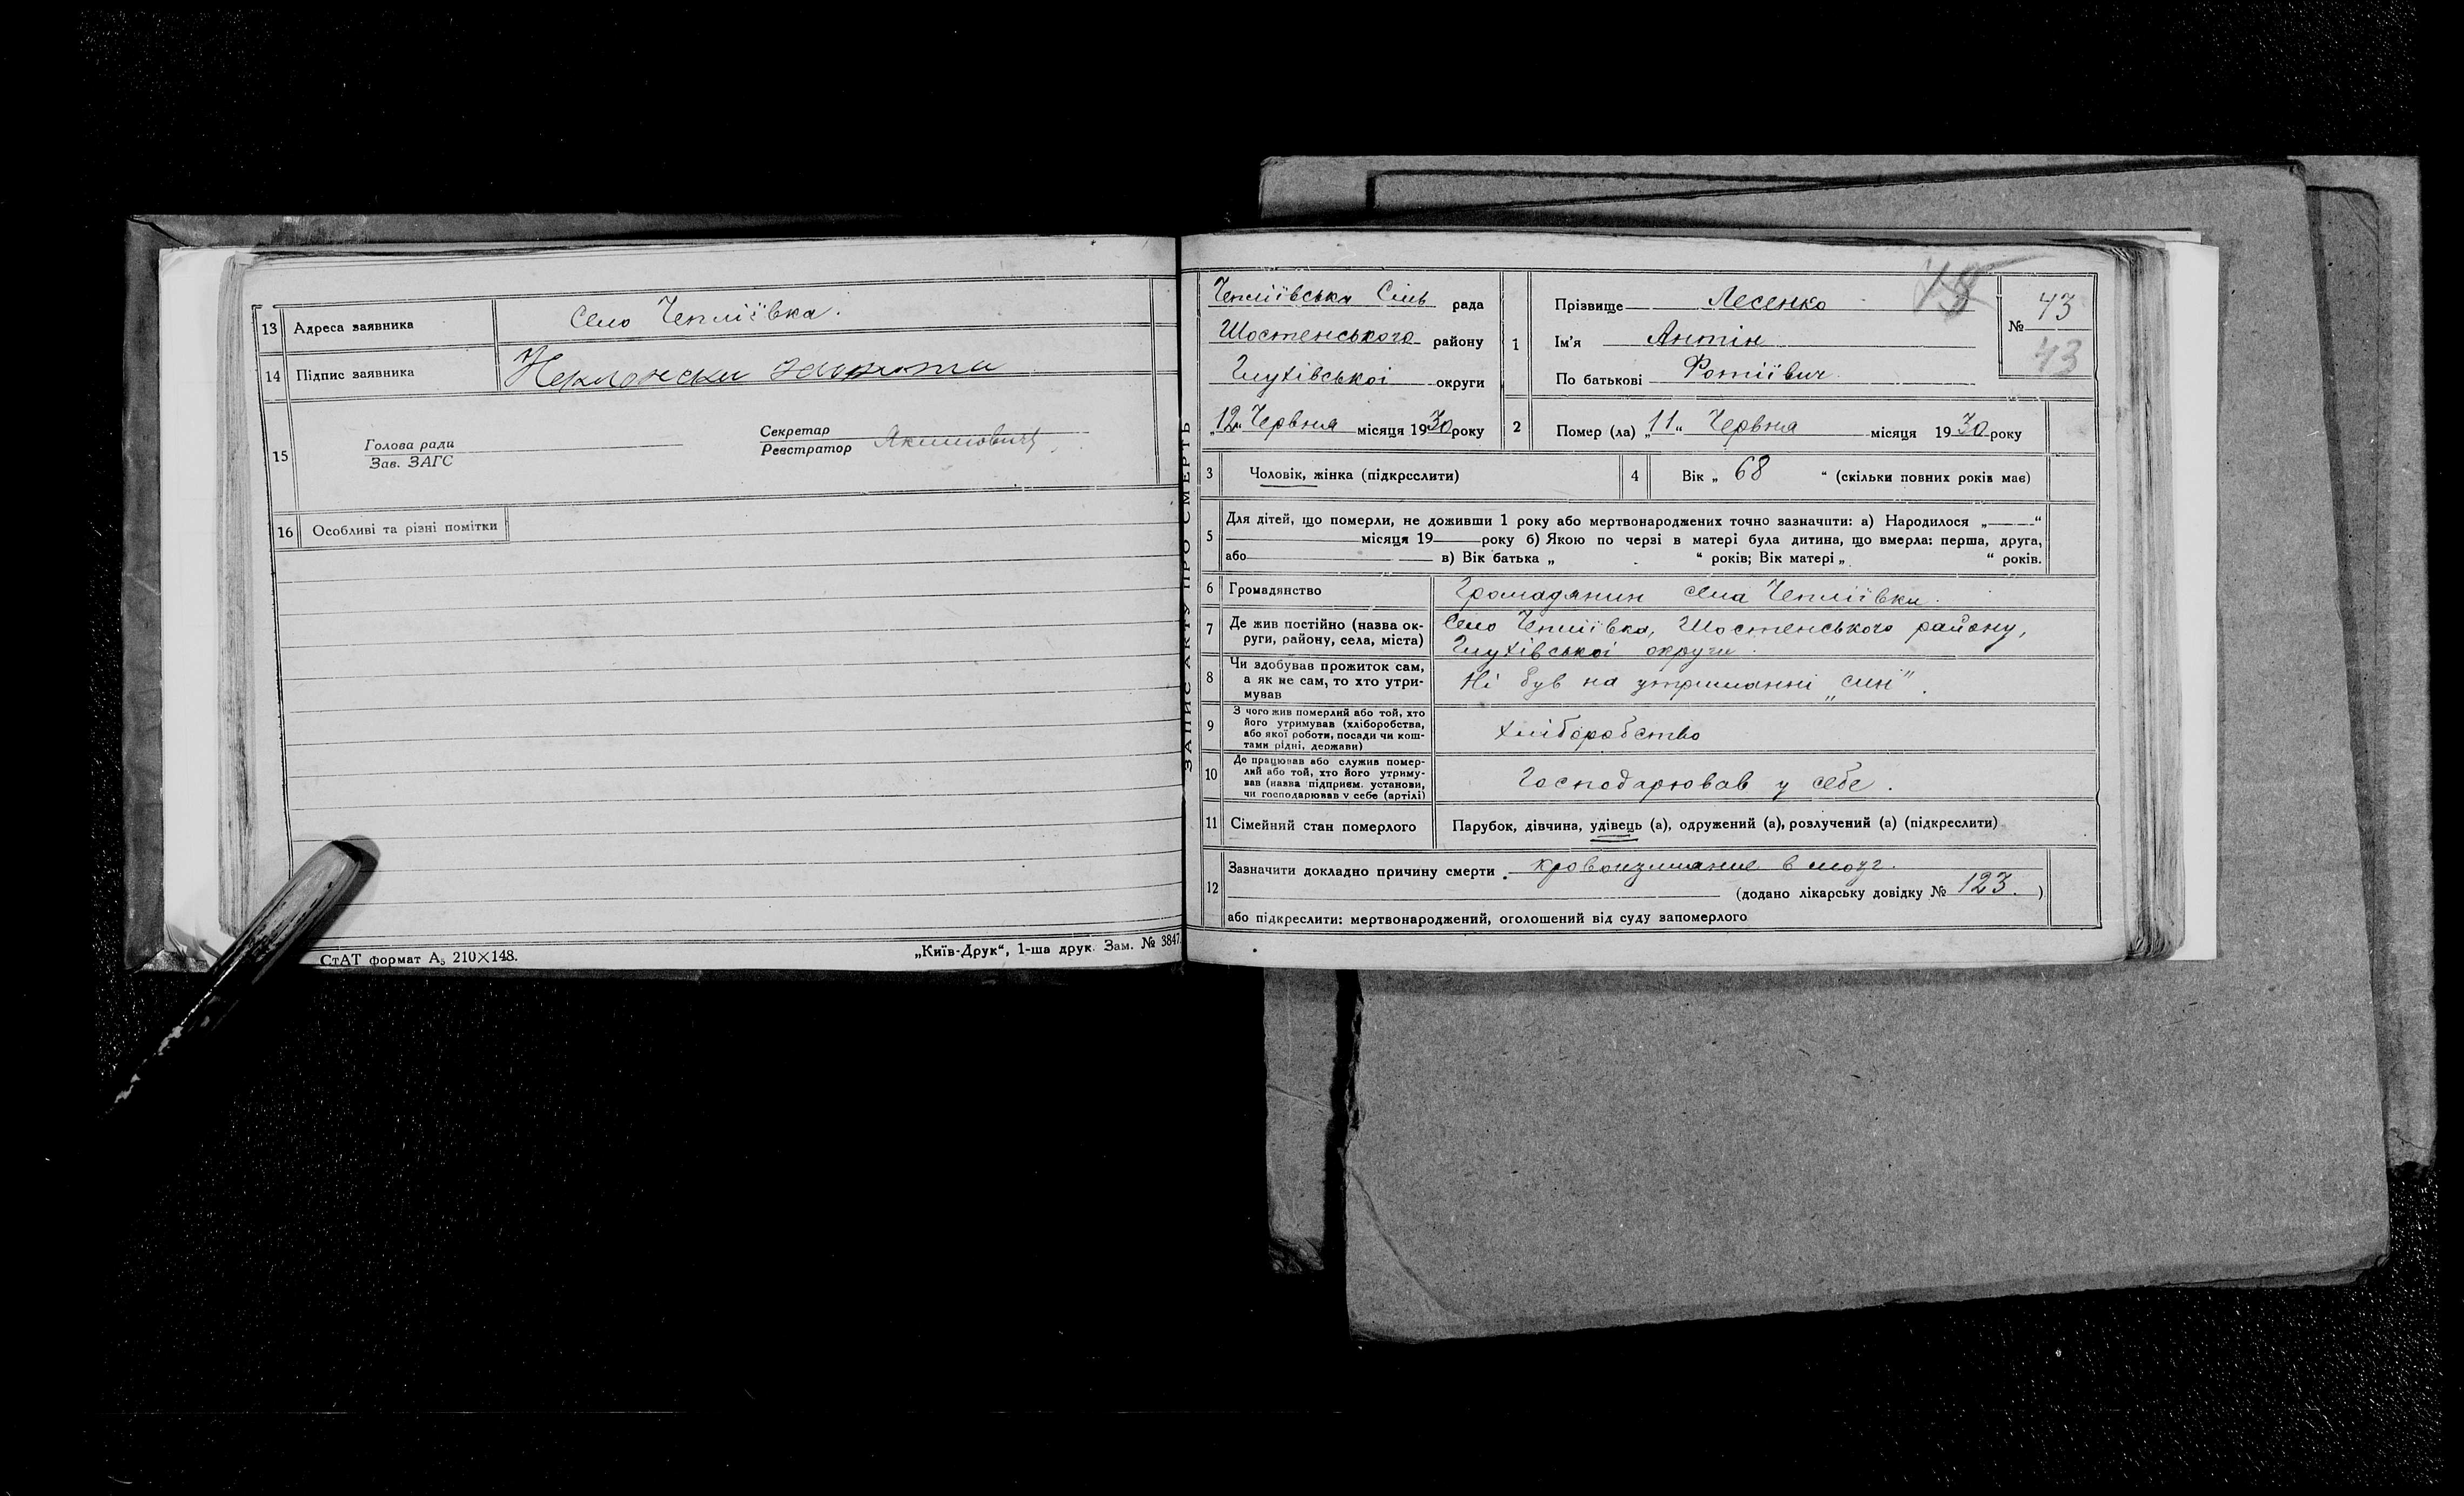 13 Адреса заявника Село Чепліївка.
14 Підпис заявника
15 Голова ради
Зав. ЗАГС
Секретар
Реєстратор Якимович
16 Особливі та різні помітки
СтАТ формат А5 210×148.
„Київ-Друк“, 1-ша друк. Зам. № 3847.
ЗАПИС АКТУ ПРО СМЕРТЬ
Чепліївська Сіль рада
Шостенського району
Глухівської округи
„12“ Червня місяця 1930 року
1 Прізвище Лесенко
Ім'я Антін
По батькові Фотіївич
№ 43
43
2 Помер (ла) „11“ Червня місяця 1930 року
3 Чоловік, жінка (підкреслити)
4 Вік „ 68 “ (скільки повних років має)
5 Для дітей, що померли, не доживши 1 року або мертвонароджених точно зазначити: а) Народилося „ “
місяця 19 року б) Якою по черзі в матері була дитина, що вмерла: перша, друга,
або в) Вік батька „ “ років; Вік матері „ “ років.
6 Громадянство Громадянин села Чепліївки.
7 Де жив постійно (назва ок-
руги, району, села, міста)
Село Чепліївка, Шостенського району,
Глухівської округи.
8 Чи здобував прожиток сам,
а як не сам, то хто утри-
мував
Ні був на утриманні „син“.
9 З чого жив померлий або той, хто
його утримував (хліборобства,
або якої роботи, посади чи кош-
тами рідні, держави)
Хліборобство
10 Де працював або служив помер-
лий або той, хто його утриму-
вав (назва підприєм. установи,
чи господарював у себе (артілі)
Господарював у себе.
11 Сімейний стан померлого Парубок, дівчина, удівець (а), одружений (а), розлучений (а) (підкреслити)
12 Зазначити докладно причину смерти кровоизлияние в мозг.
(додано лікарську довідку № 123. )
або підкреслити: мертвонароджений, оголошений від суду запомерлого